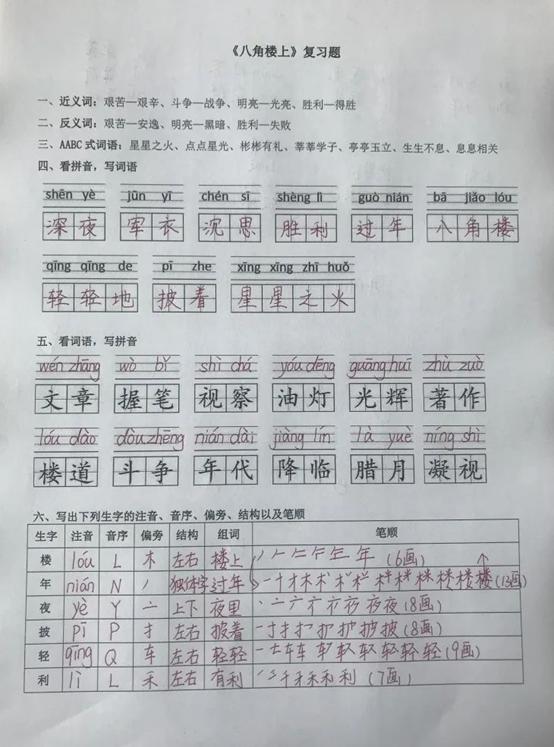 《八角楼上》复习题
一、近义词：艰苦—艰辛、斗争—战争、明亮—光亮、胜利—得胜
二、反义词：艰苦—安逸、明亮—黑暗、胜利—失败
三、AABC式词语：星星之火、点点星光、彬彬有礼、莘莘学子、亭亭玉立、生生不息、息息相关
四、看拼音，写词语
shēn yè jūn yī chén sī shèng lì guò nián bā jiǎo lóu
深夜 军衣 沉思 胜利 过年 八角楼
qīng qīng de pī zhe xīng xīng zhī huǒ
轻轻地 披着 星星之火
五、看词语，写拼音
wén zhāng wò bǐ shì chá yóu dēng guāng huī zhù zuò
文章 握笔 视察 油灯 光辉 著作
lóu dào dòu zhēng nián dài jiàng lín là yuè níng shì
楼道 斗争 年代 降临 腊月 凝视
六、写出下列生字的注音、音序、偏旁、结构以及笔顺
生字 注音 音序 偏旁 结构 组词 笔顺
楼 lóu L 木 左右 楼上 年(6画)
年 nián N 丿 独体字 过年 一十才木 楼(13画)
夜 yè Y 亠 上下 夜里 夜(8画)
披 pī P 扌 左右 披着 披(8画)
轻 qīng Q 车 左右 轻轻 轻(9画)
利 lì L 禾 左右 有利 利(7画)